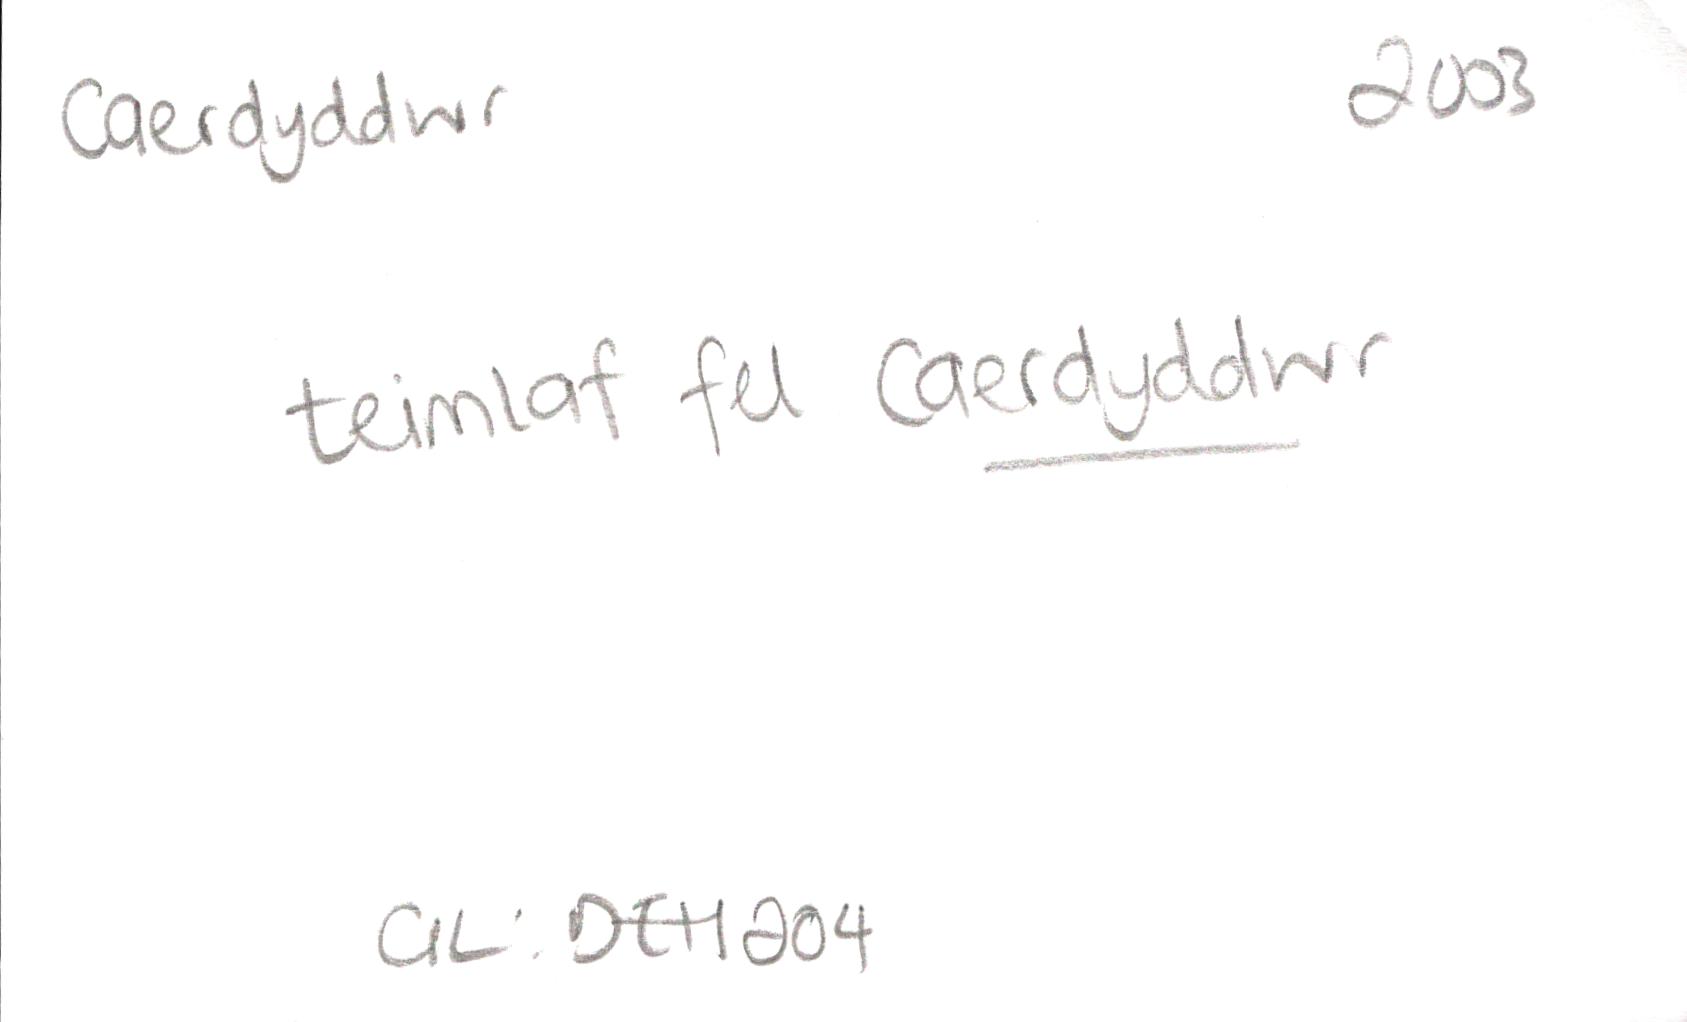 Caerdyddwr 2003
teimlaf fel Caerdyddwr
GL: DEH 204